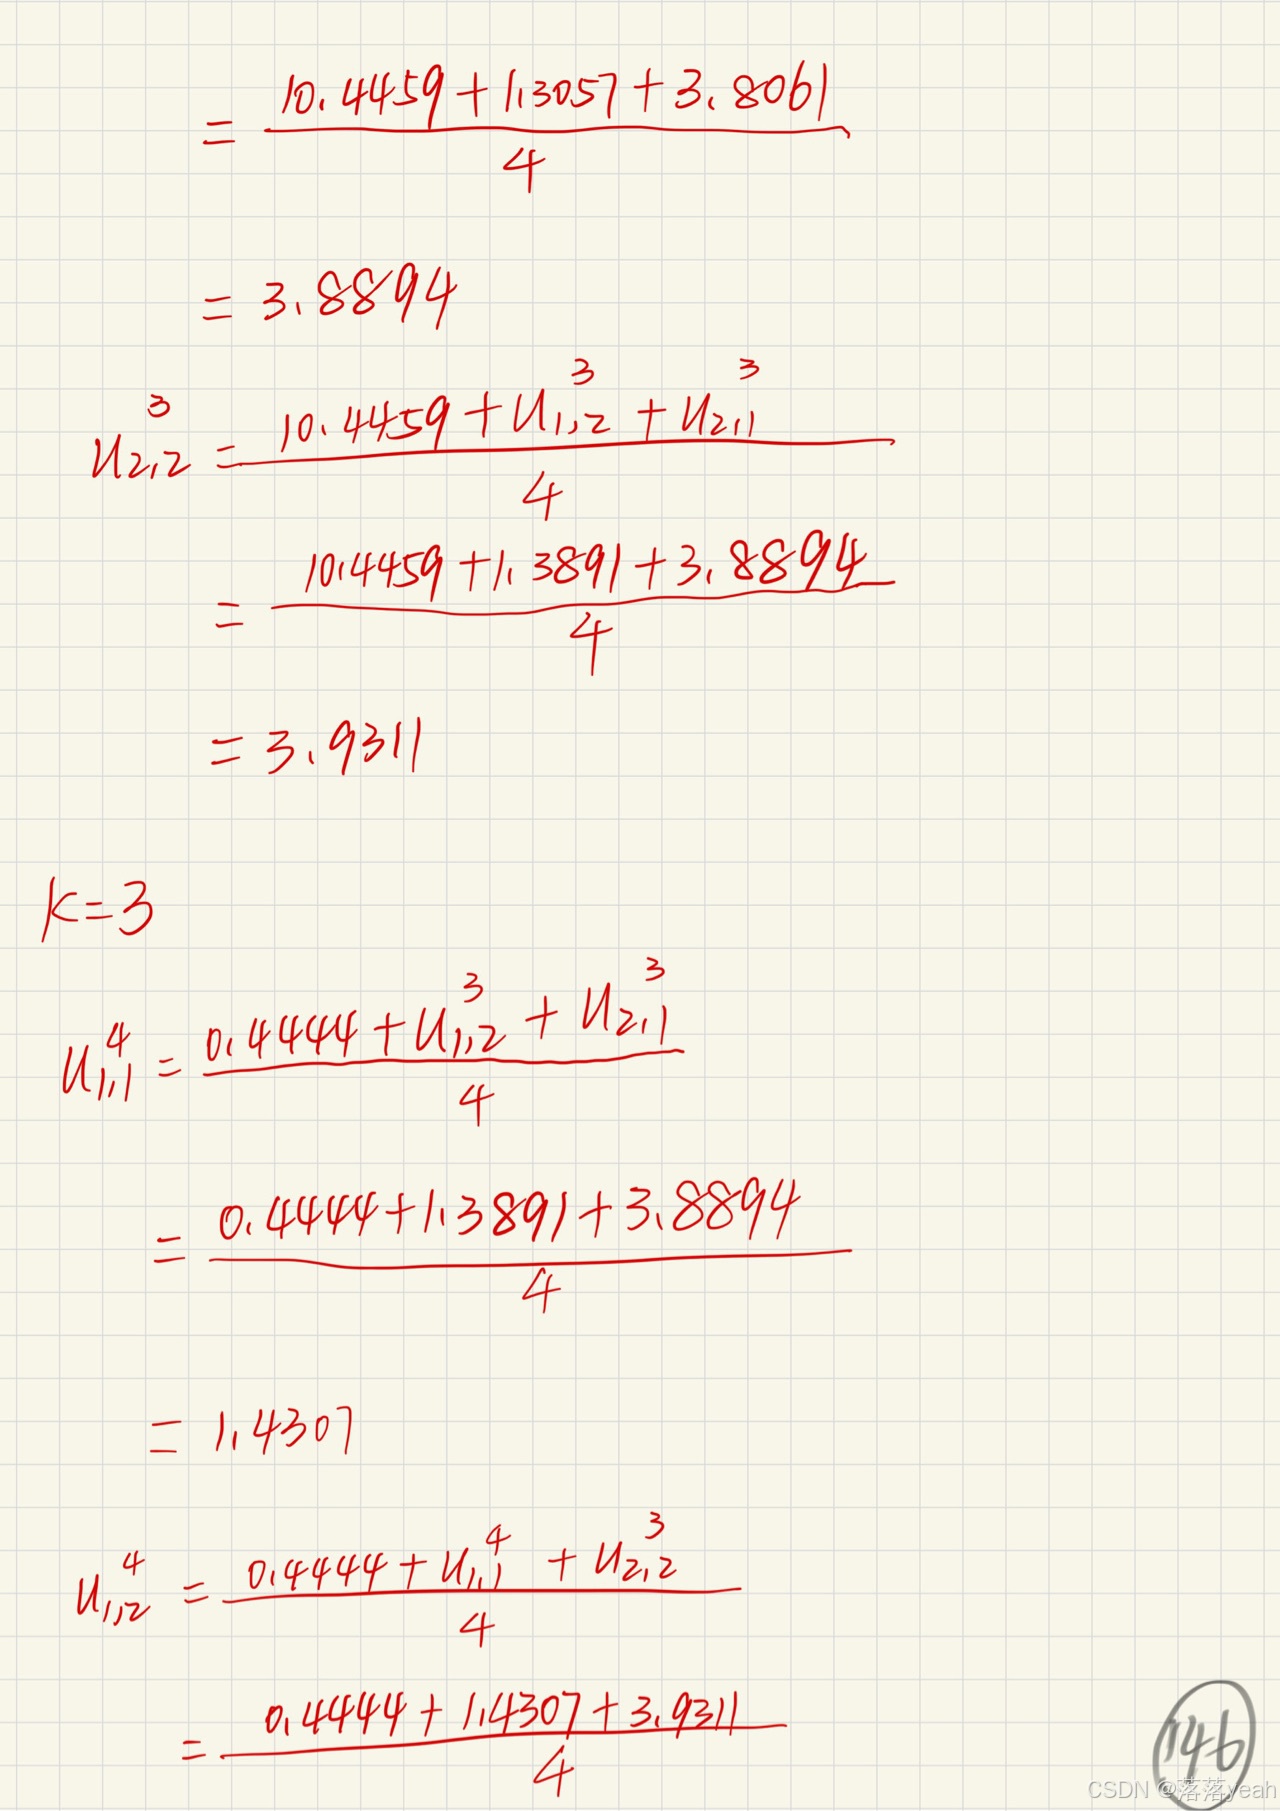 = (10.4459 + 1.3057 + 3.8061) / 4
= 3.8894
u_{2,2}^3 = (10.4459 + u_{1,2}^3 + u_{2,1}^3) / 4
= (10.4459 + 1.3891 + 3.8894) / 4
= 3.9311
k=3
u_{1,1}^4 = (0.4444 + u_{1,2}^3 + u_{2,1}^3) / 4
= (0.4444 + 1.3891 + 3.8894) / 4
= 1.4307
u_{1,2}^4 = (0.4444 + u_{1,1}^4 + u_{2,2}^3) / 4
= (0.4444 + 1.4307 + 3.9311) / 4
146
CSDN @落落yeah